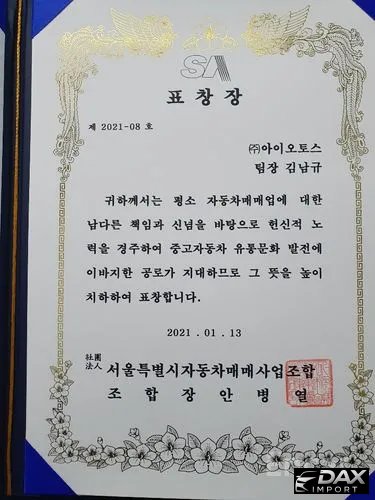 SA
표창장
제 2021-08 호
㈜아이오토스
팀장 김남규
귀하께서는 평소 자동차매매업에 대한
남다른 책임과 신념을 바탕으로 헌신적 노
력을 경주하여 중고자동차 유통문화 발전에
이바지한 공로가 지대하므로 그 뜻을 높이
치하하여 표창합니다.
2021.01.13
社團法人 서울특별시자동차매매사업조합
조합장 안병열
DAX
IMPORT